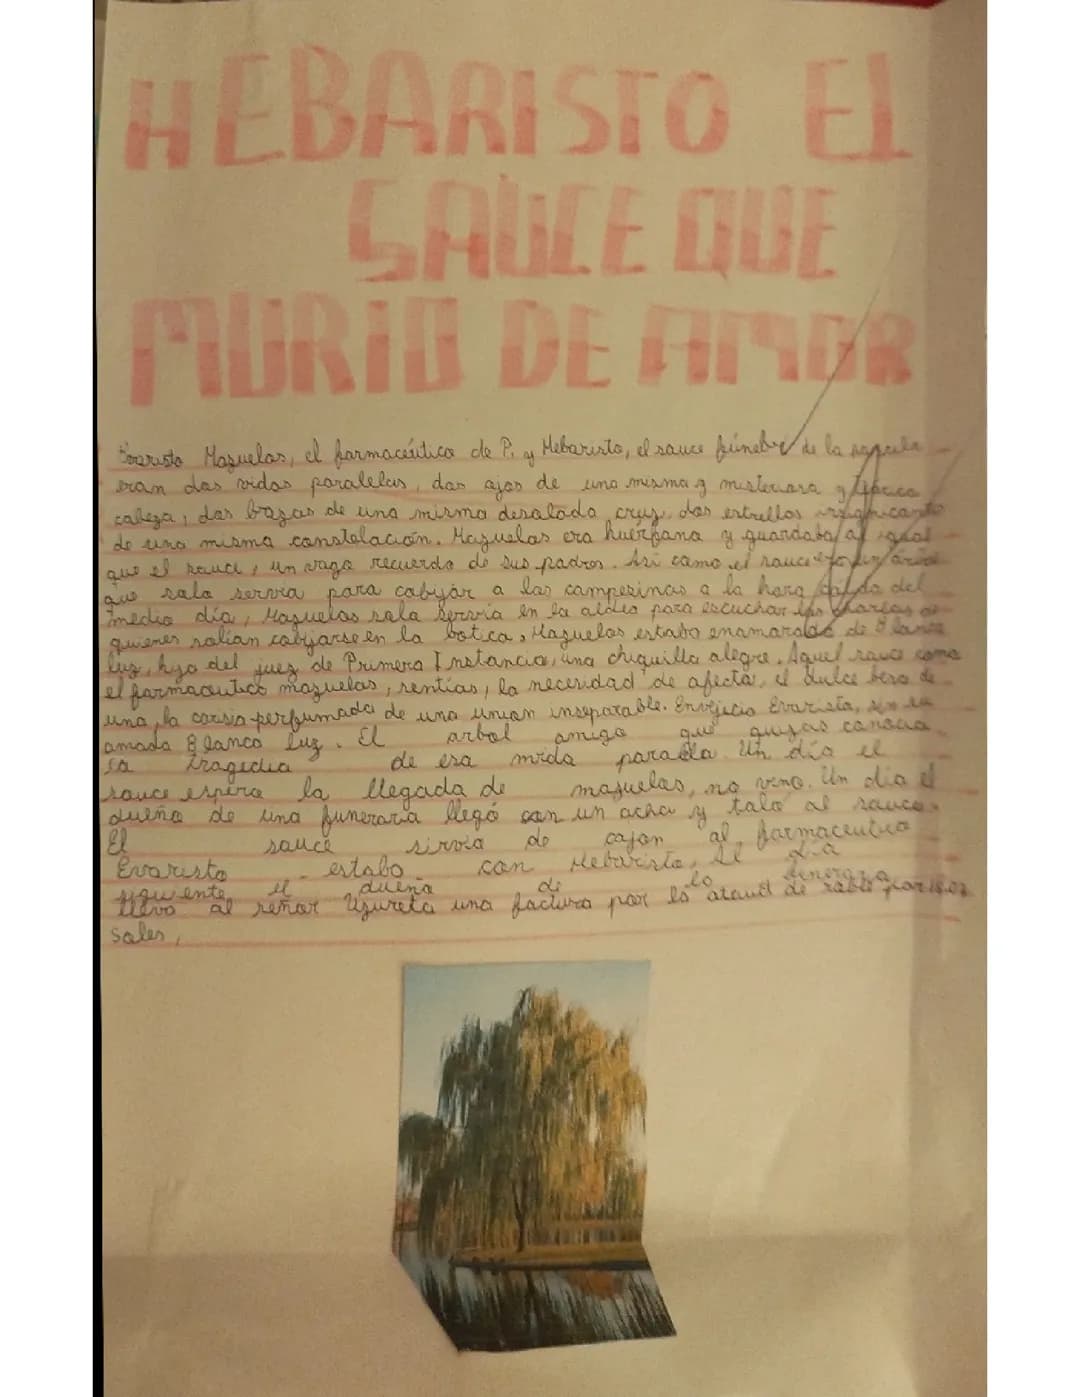 HEBARISTO El
SAUCE QUE
MURIO DE AMOR
Evaristo Mazuelos, el farmaceútico de P. y Hebaristo, el sauce fúnebre de la parcela
eran dos vidas paralelas, dos ojos de una misma y misteriosa y
cabeza, dos brazos de una misma desolada cruz, dos estrellas insignicante
de una misma constelación. Mazuelos era huérfano y guardaba al igual
que el sauce, un vago recuerdo de sus padres. Así como el sauce era un árbol
que solo servia para cobijar a los campesinos a la hora calida del
medio día, Mazuelos solo servía en la aldea para escuchar las charlas de
quienes solían cobijarse en la botica, Mazuelos estaba enamorado de Blanca
luz, hija del juez de Primera Instancia, una chiquilla alegre. Aquel sauce como
el farmaceutico mazuelos, sentías, la necesidad de afecto, el dulce beso de
una, la caricia perfumada de una union inseparable. Envejecio Evaristo, sin su
amada Blanca luz. El arbol amigo que quizas conocia
la tragedia de esa vida paralela. Un día el
sauce espera la llegada de mazuelos, no vino. Un día el
dueño de una funeraria llegó con un acha y talo al sauce.
El sauce sirvio de cajon al farmaceutico
Evaristo estaba con Hebaristo, El día
siguiente el dueño de la funeraria
llevo al señor Uzureta una factura por el ataud de roble por 18.02
Soles,